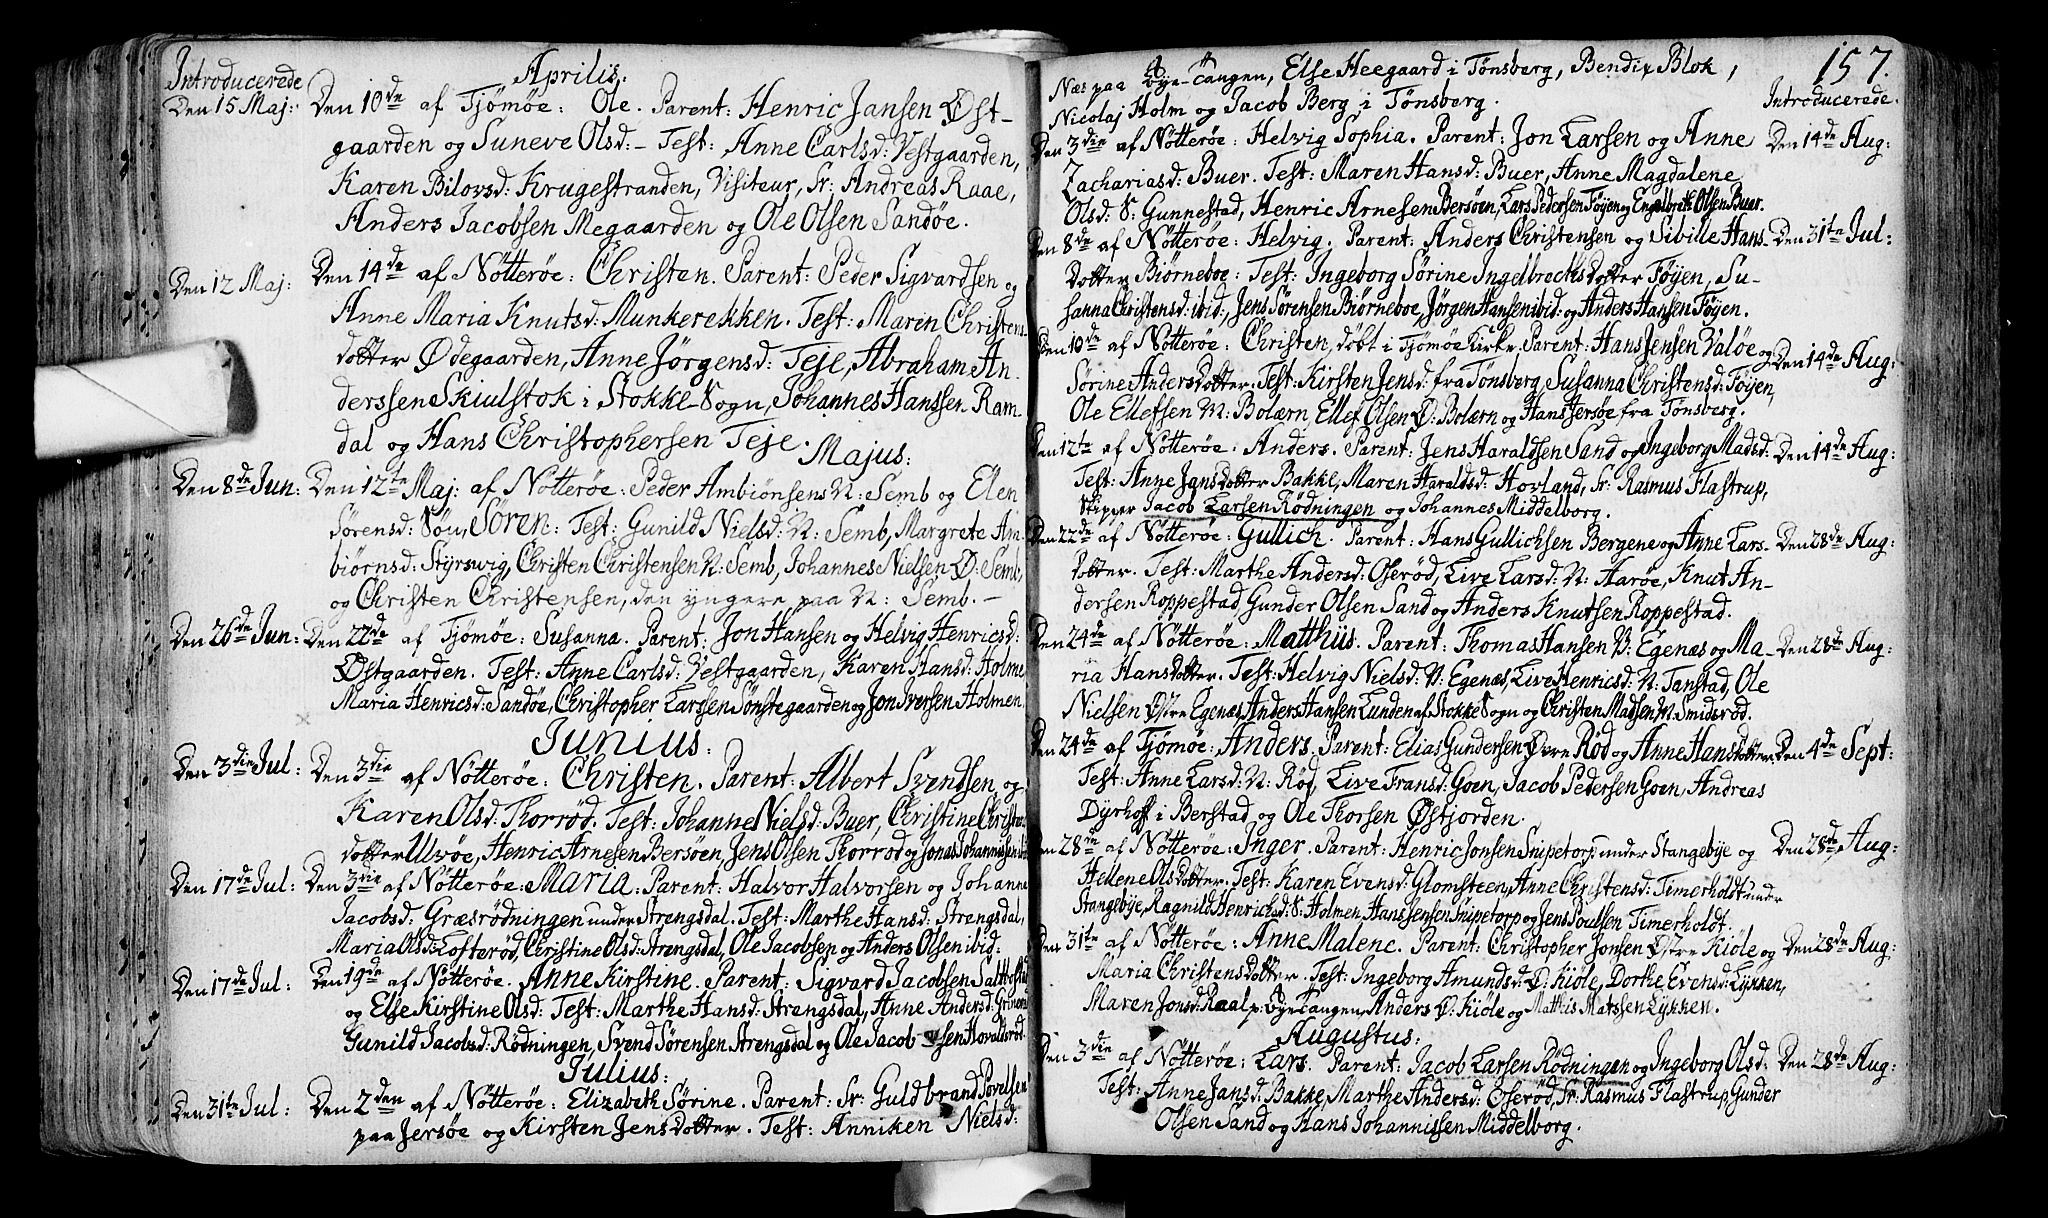 Introducerede
Aprilis:
Den 15 Maj: Den 10de af Tjömöe: Ole. Parent: Henric Jansen Øst-
gaarden og Suneve Olsd: - Test: Anne Carlsd: Vestgaarden,
Karen Bilovsd: Krugestranden, Visiteur, Sr: Andreas Raae,
Anders Jacobsen Megaarden og Ole Olsen Sandöe.
Den 12 Maj: Den 14de af Nötteröe: Christen. Parent: Peder Sigvardsen og
Anne Maria Knutsd: Munkerekken. Test: Maren Christens
dotter Ødegaarden, Anne Jörgensd: Teje, Abraham An-
derssen Skiulstok i Stokke-Sogn, Johannes Hanssen Ram-
dal og Hans Christophersen Teje.
Majus:
Den 8de Jun: Den 12te Maj: af Nötteröe: Peder Ambiönsens N: Semb og Elen
Sörensd: Sön, Sören: Test: Gunild Nielsd: N: Semb, Margrete Am-
biörnsd: Styrsvig, Christen Christensen N: Semb, Johannes Nielsen Ø: Semb,
og Christen Christensen, den yngere paa N: Semb. -
Den 26de Jun: Den 22de af Tjömöe: Susanna. Parent: Jon Hansen og Helvig Henricsd:
Østgaarden. Test: Anne Carlsd: Vestgaarden, Karen Hansd: Holme
Maria Henricsd: Sandöe, Christopher Larssen Sönstegaarden og Jon Iversen Holmen.
Junius:
Den 3die Jul: Den 3die af Nötteröe: Christen. Parent: Albert Svendsen og
Karen Olsd: Thorröd. Test: Johanne Nielsd: Buer, Christine Christens
dotter Ulvöe, Henric Arnesen Bersöen, Jens Olsen Thorröd og Jonas Johannissen
Den 17de Jul: Den 3die af Nötteröe: Maria: Parent: Halvor Halvorsen og Johanne
Jacobsd: Græsrödningen under Strengsdal. Test: Marthe Hansd: Strengsdal,
Maria Olsd: Lofteröd, Christine Olsd: Strengsdal, Ole Jacobsen og Anders Olsen ibid:
Den 17de Jul: Den 19de af Nötteröe. Anne Kirstine. Parent: Sigvard Jacobsen
og Else Kirstine Olsd: Test: Marthe Hansd: Strengsdal, Anne Andersd:
Gunild Jacobsd: Rödningen, Svend Sörensen Strengsdal og Ole Jacobsen Hovaldsröd.
Julius:
Den 31te Jul: Den 2den af Nötteröe: Elizabeth Sörine. Parent: Sr: Guldbrand Povelsen
paa Jersöe og Kirsten Jensdotter. Test: Anniken Nielsd:
157.
Næs paa Øye-Tangen, Else Heegaard i Tönsberg, Bendix Blok,
Nicolaj Holm og Jacob Berg i Tönsberg.
Introducerede.
Den 3die af Nötteröe: Helvig Sophia. Parent: Jon Larsen og Anne Den 14de Aug:
Zachariasd: Buer. Test: Maren Hansd: Buer, Anne Magdalene
Olsd: S: Gunnestad, Henric Arnesen Bersöen, Lars Pedersen Föyen og Engelbret Olsen Buer.
Den 8de af Nötteröe: Helvig. Parent: Anders Christensen og Sibille Hans- Den 31te Jul:
Dotter Biörneboe: Test: Ingeborg Sörine Ingelbrechts Dotter Föyen, Su-
sanna Christensd: ibid:, Jens Sörensen Biörneboe, Jörgen Hansen ibid: og Anders Hansen Föyen.
Den 10de af Nötteröe: Christen, döbt i Tjömöe Kirke. Parent: Hans Jensen Valöe og Den 14de Aug:
Sörine Andersdotter. Test: Kirsten Jensd: fra Tönsberg, Susanna Christensd: Föyen,
Ole Ellefsen N: Bolærn, Ellef Olsen Ø: Bolærn og Hans Jersöe fra Tönsberg.
Den 12te af Nötteröe: Anders. Parent: Jens Haraldsen Sand og Ingeborg Madsd: Den 14de Aug:
Test: Anne Jansdotter Bakke, Maren Haraldsd: Hovland, Sr: Rasmus Flastrup,
Skipper Jacob Larsen Rödningen og Johannes Middelborg.
Den 22de af Nötteröe: Gullich. Parent: Hans Gullichsen Bergene og Anne Lars- Den 28de Aug:
Dotter. Test: Marthe Andersd: Oseröd, Live Larsd: N: Aaröe, Knut An-
dersen Roppestad, Gunder Olsen Sand og Anders Knutsen Roppestad.
Den 24de af Nötteröe: Matthiis. Parent: Thomas Hansen N: Egenæs og Ma- Den 28de Aug:
ria Hansdotter. Test: Helvig Nielsd: N: Egenæs, Live Henricsd: N: Tanstad, Ole
Nielsen Østre Egenæs, Anders Hansen Lunden af Stokke Sogn og Christen Madsen N: Smidsröd.
Den 24de af Tjömöe: Anders. Parent: Elias Gundersen Øvre Röd og Anne Hansdotter. Den 4de Sept:
Test: Anne Larsd: N: Röd, Live Fransd: Goen, Jacob Pedersen Goen, Andreas
Dyrhoff i Berstad og Ole Thorsen Østjorden.
Den 28de af Nötteröe: Inger. Parent: Henric Jonsen Snipetorp under Stangebye og Den 28de Aug:
Hellene Olsdotter. Test: Karen Evensd: Glomsteen, Anne Christensd: Timerholdt under
Stangebye, Ragnild Henrichsd: S: Holmen, Hans Jensen Snipetorp og Jens Poulsen Timerholdt.
Den 31te af Nötteröe: Anne Malene. Parent: Christopher Jonsen Østre Kiöle og Den 28de Aug:
Maria Christensdotter. Test: Ingeborg Amundsd: Ø: Kiöle, Dorthe Evensd: Lykken,
Maren Jonsd: Raal p: Øye Tangen, Anders Ø: Kiöle og Matthis Matssen Lykken.
Augustus:
Den 3die af Nötteröe: Lars. Parent: Jacob Larsen Rödningen og Ingeborg Olsd: Den 28de Aug:
Test: Anne Jansd: Bakke, Marthe Andersd: Oseröd, Sr: Rasmus Flastrup, Gunder
Olsen Sand og Hans Johannissen Middelborg.